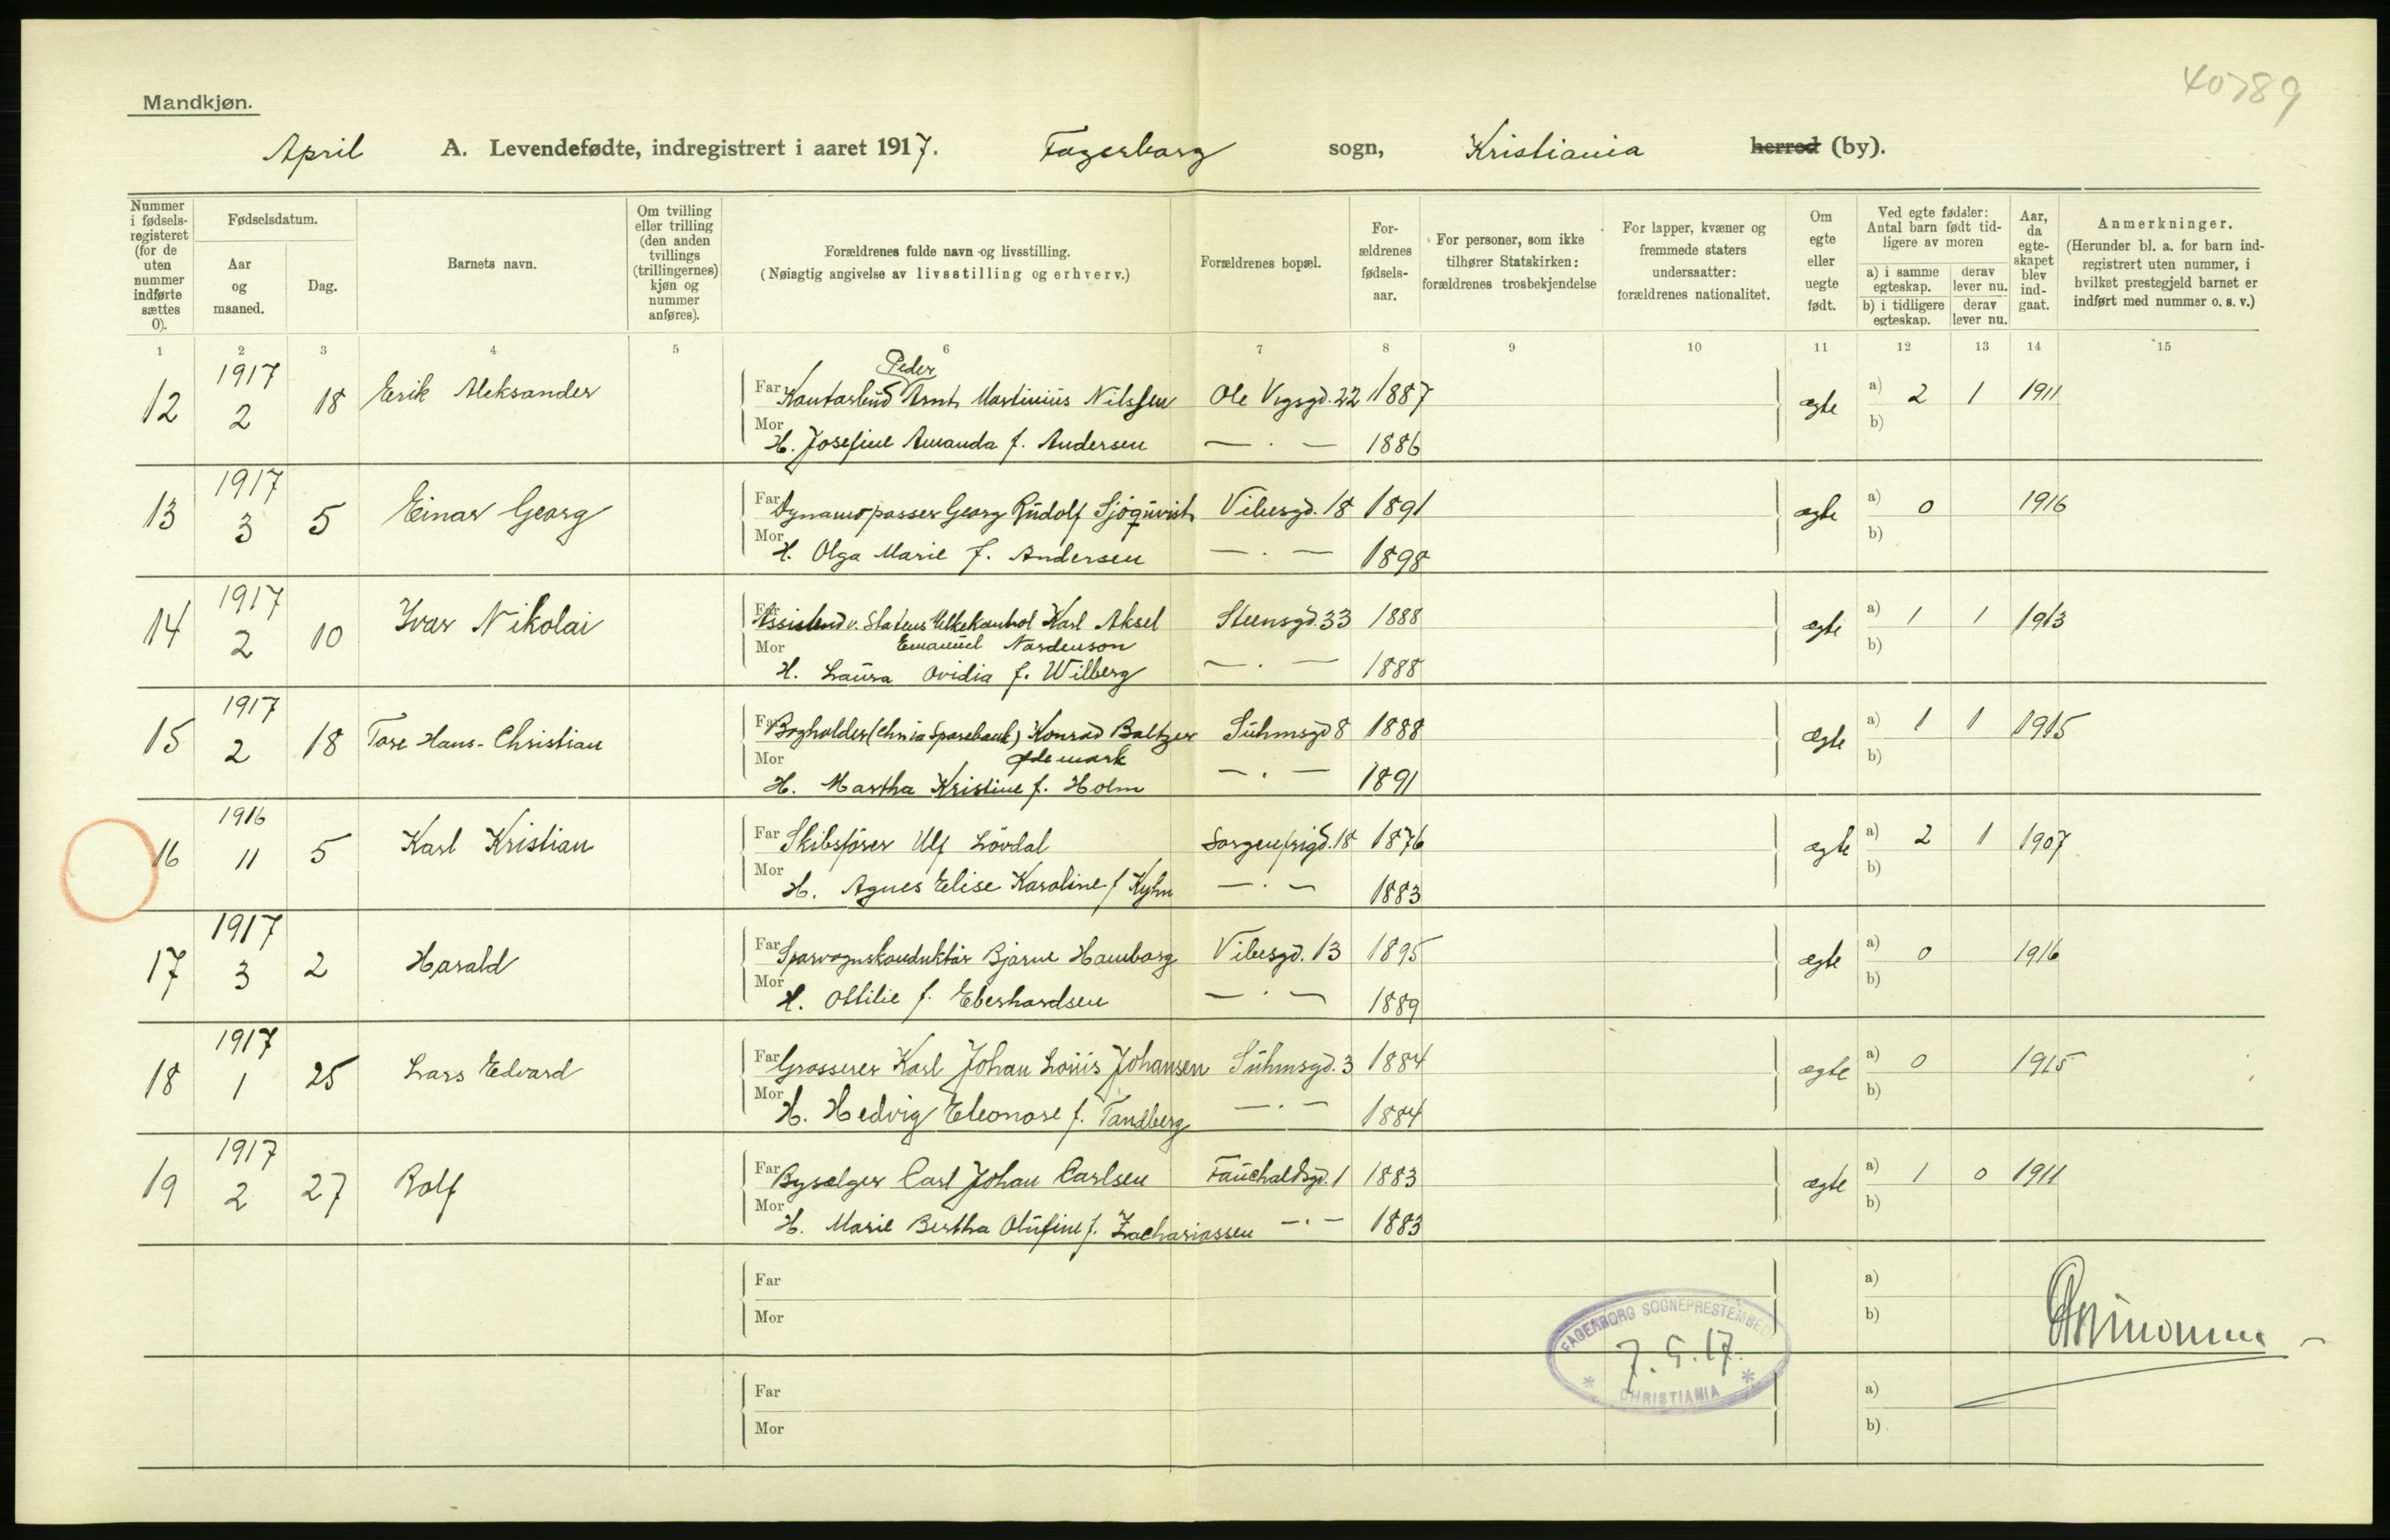 40789
Mandkjøn.
April A. Levendefødte, indregistrert i aaret 1917. Fagerborg sogn, Kristiania herred (by).
Nummer i fødsels-registeret (for de uten nummer indførte sættes 0).
Fødselsdatum.
Aar og maaned.
Dag.
Barnets navn.
Om tvilling eller trilling (den anden tvillings (trillingernes) kjøn og nummer anføres).
Forældrenes fulde navn og livsstilling.
(Nøiagtig angivelse av livsstilling og erhverv.)
Forældrenes bopæl.
For-ældrenes fødsels-aar.
For personer, som ikke tilhører Statskirken: forældrenes trosbekjendelse
For lapper, kvæner og fremmede staters undersaatter: forældrenes nationalitet.
Om egte eller uegte født.
Ved egte fødsler: Antal barn født tid-ligere av moren
a) i samme egteskap. derav lever nu.
b) i tidligere egteskap. derav lever nu.
Aar, da egte-skapet blev ind-gaat.
Anmerkninger.
(Herunder bl. a. for barn ind-registrert uten nummer, i hvilket prestegjeld barnet er indført med nummer o. s. v.)
1 2 3 4 5 6 7 8 9 10 11 12 13 14 15
12 1917 2 18 Erik Aleksander
Peder
Far Kontorbud Arnt Martinius Nilssen Ole Vigsgd. 22 1887 ægte a) 2 1 1911
Mor H. Josefine Amanda f. Andersen — . — 1886 b)
13 1917 3 5 Einar Georg
Far Dynamopasser Georg Rudolf Sjöquvist Vibesgd. 18 1891 ægte a) 0 1916
Mor H. Olga Marie f. Andersen — . — 1898 b)
14 1917 2 10 Ivar Nikolai
Far Assistend v. Statens Melkekontrol Karl Aksel Steensgd. 33 1888 ægte a) 1 1 1913
Emanuel Nordenson
Mor H. Laura Ovidia f. Wilberg — . — 1888 b)
15 1917 2 18 Tore Hans-Christian
Far Bogholder (Chnia Sparebank) Konrad Baltzer Suhmsgd 8 1888 ægte a) 1 1 1915
Ødemark
Mor H. Martha Kristine f. Holm — . — 1891 b)
16 1916 11 5 Karl Kristian
Far Skibsfører Ulf Lövdal Sorgenfrigd. 18 1876 ægte a) 2 1 1907
Mor H. Agnes Elise Karoline f Kyhn — . — 1883 b)
17 1917 3 2 Harald
Far Sporvognskonduktör Bjarne Hamborg Vibesgd. 13 1895 ægte a) 0 1916
Mor H. Ottilie f. Eberhardsen — . — 1889 b)
18 1917 1 25 Lars Edvard
Far Grosserer Karl Johan Louis Johansen Suhmsgd. 3 1884 ægte a) 0 1915
Mor H. Hedvig Eleonore f. Tandberg — . — 1884 b)
19 1917 2 27 Rolf
Far Bysælger Carl Johan Carlsen Fauchaldsgd. 1 1883 ægte a) 1 0 1911
Mor H. Marie Bertha Olufine f. Zachariassen — . — 1883 b)
Far a)
Mor b)
FAGERBORG SOGNEPRESTEMBED
7.5.17.
* CHRISTIANIA *
Far a)
Mor b)